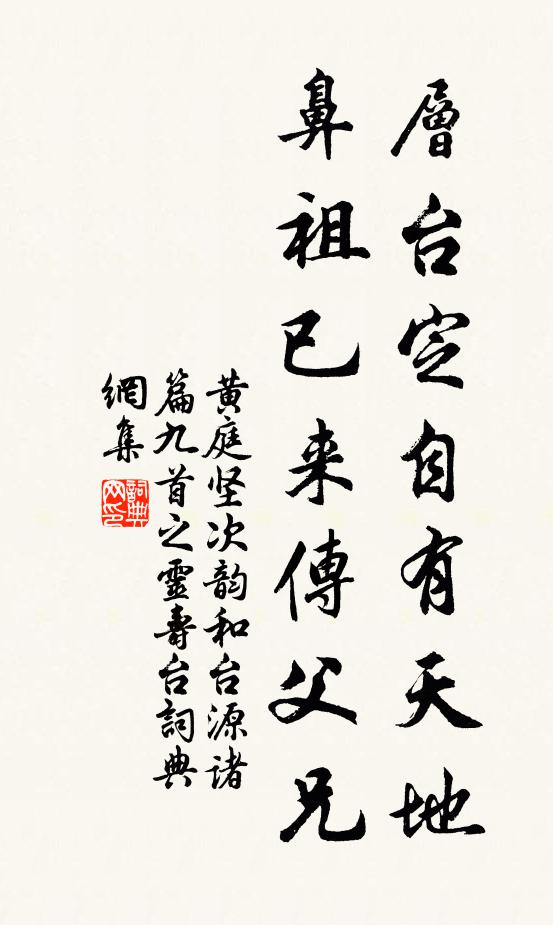 層台定自有天地
鼻祖已来傳父兄
黄庭坚次韵和台源诸
篇九首之靈壽台詞典
網集
詞典
网印